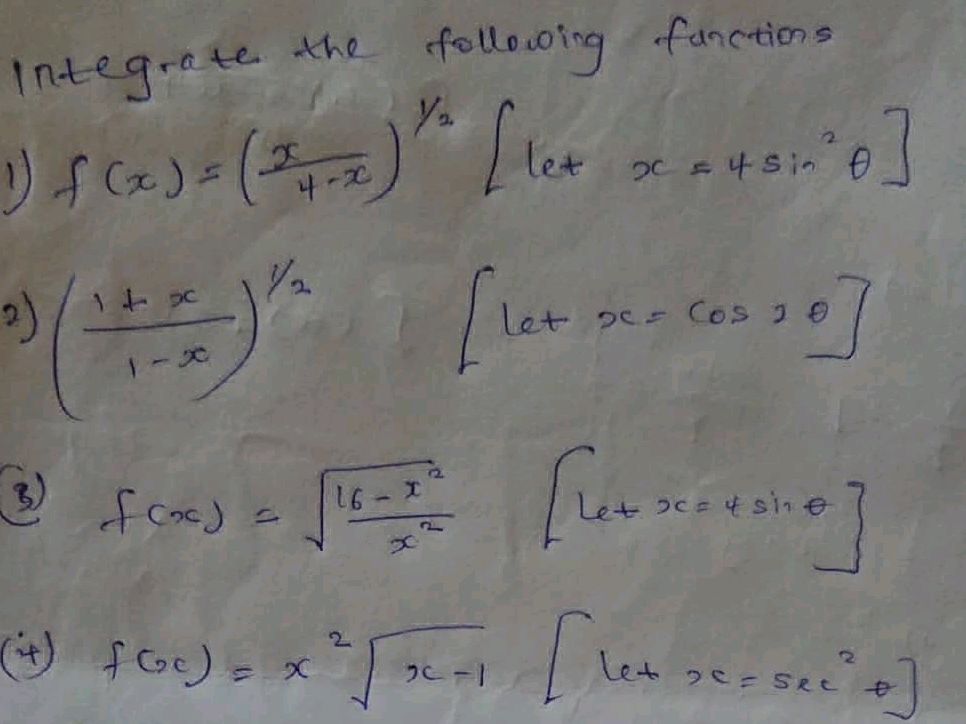 Integrate the following functions
1) f(x) = (x / 4-x)^1/2 [let x = 4 sin² θ]
2) (1 + x / 1 - x)^1/2 [let x = cos 2 θ]
(3) f(x) = √(16 - x² / x²) [Let x = 4 sin θ]
(4) f(x) = x² √(x-1) [let x = sec² θ]